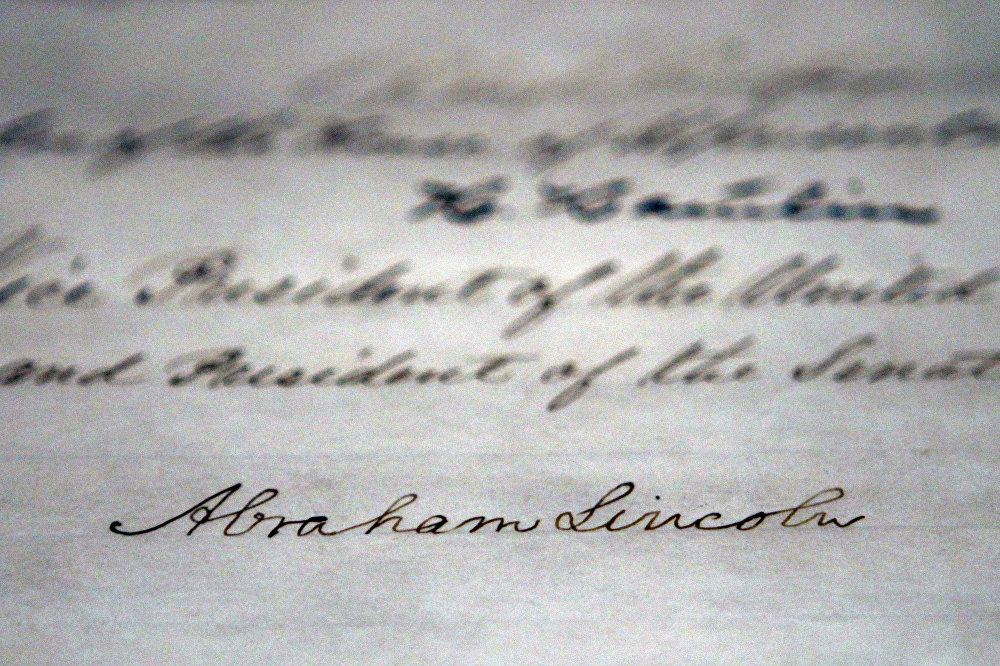 of the House of Representatives
H Hamlin
Vice President of the United
and President of the Senate
Abraham Lincoln